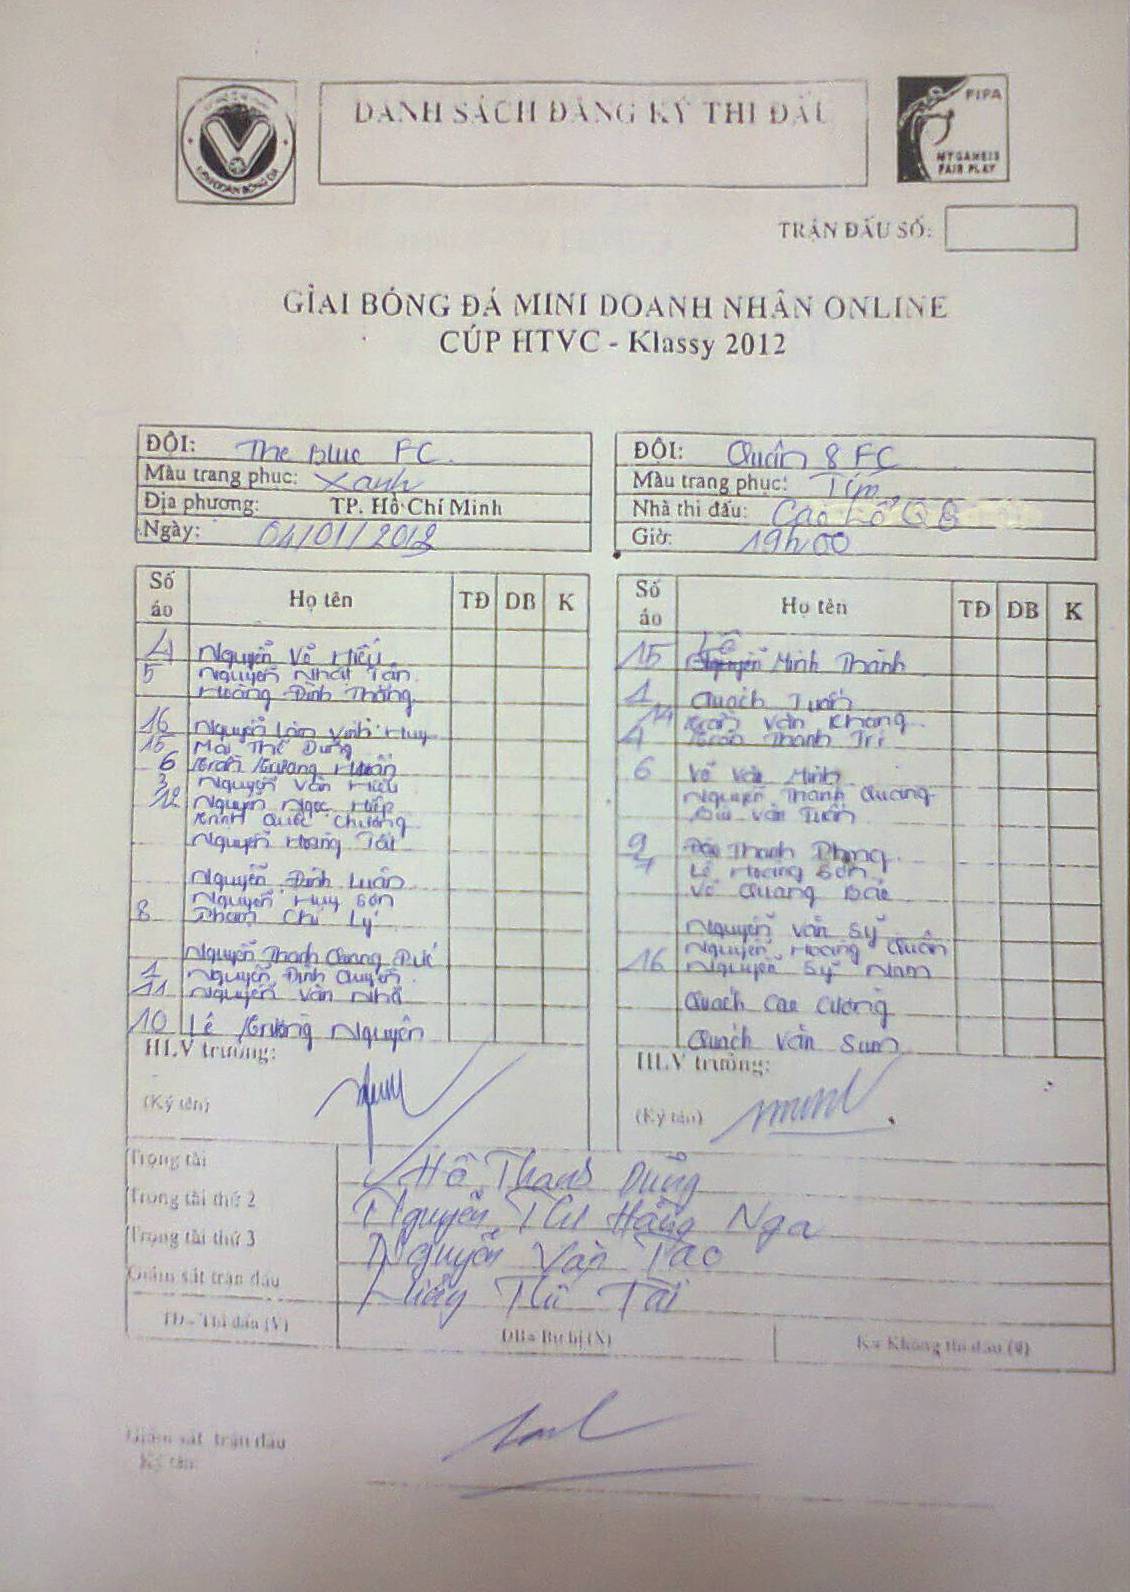 DANH SÁCH ĐĂNG KÝ THI ĐẤU
LIÊN ĐOÀN BÓNG ĐÁ
FIFA
MY GAME IS
FAIR PLAY
TRẬN ĐẤU SỐ:
GIẢI BÓNG ĐÁ MINI DOANH NHÂN ONLINE
CÚP HTVC - Klassy 2012
ĐỘI: The Blue FC
Màu trang phục: Xanh
Địa phương: TP. Hồ Chí Minh
Ngày: 04/01/2012
ĐỘI: Quận 8 FC
Màu trang phục: Tím
Nhà thi đấu: Cao Lỗ Q 8
Giờ: 19h00
Số áo Họ tên TĐ DB K
4 Nguyễn Võ Hiếu
5 Nguyễn Nhật Tân
Hoàng Đình Thống
16 Nguyễn Lâm Vinh Huy
15 Mai Thế Dũng
6 Trần Quang Huân
3 Nguyễn Văn Hiếu
12 Nguyễn Ngọc Hiệp
Trịnh Quốc Chương
Nguyễn Hoàng Tài
Nguyễn Đình Luân
Nguyễn Huy Sơn
8 Phạm Chí Lý
Nguyễn Thanh Quang Đức
1 Nguyễn Đình Quyền
11 Nguyễn Văn Nhã
10 Lê Trường Nguyên
HLV trưởng:
(Ký tên)
Số áo Họ tên TĐ DB K
15 Lê Minh Thành
1 Quách Tuấn
14 Trần Văn Khang
4 Trần Thanh Trí
6 Võ Văn Minh
Nguyễn Thanh Quang
Bùi Văn Tuấn
9 Đào Thanh Phong
7 Lê Hoàng Sơn
Võ Quang Bảo
Nguyễn Văn Sỹ
Nguyễn Hoàng Quân
16 Nguyễn Sỹ Nam
Quách Cao Cường
Quách Văn Sum
HLV trưởng:
(Ký tên)
Trọng tài Hồ Thanh Dũng
Trọng tài thứ 2 Nguyễn Thị Hằng Nga
Trọng tài thứ 3 Nguyễn Văn Tào
Giám sát trận đấu Tài
TĐ= Thi đấu (V) DB= Dự bị (X) K= Không thi đấu (0)
Giám sát trận đấu
Ký tên